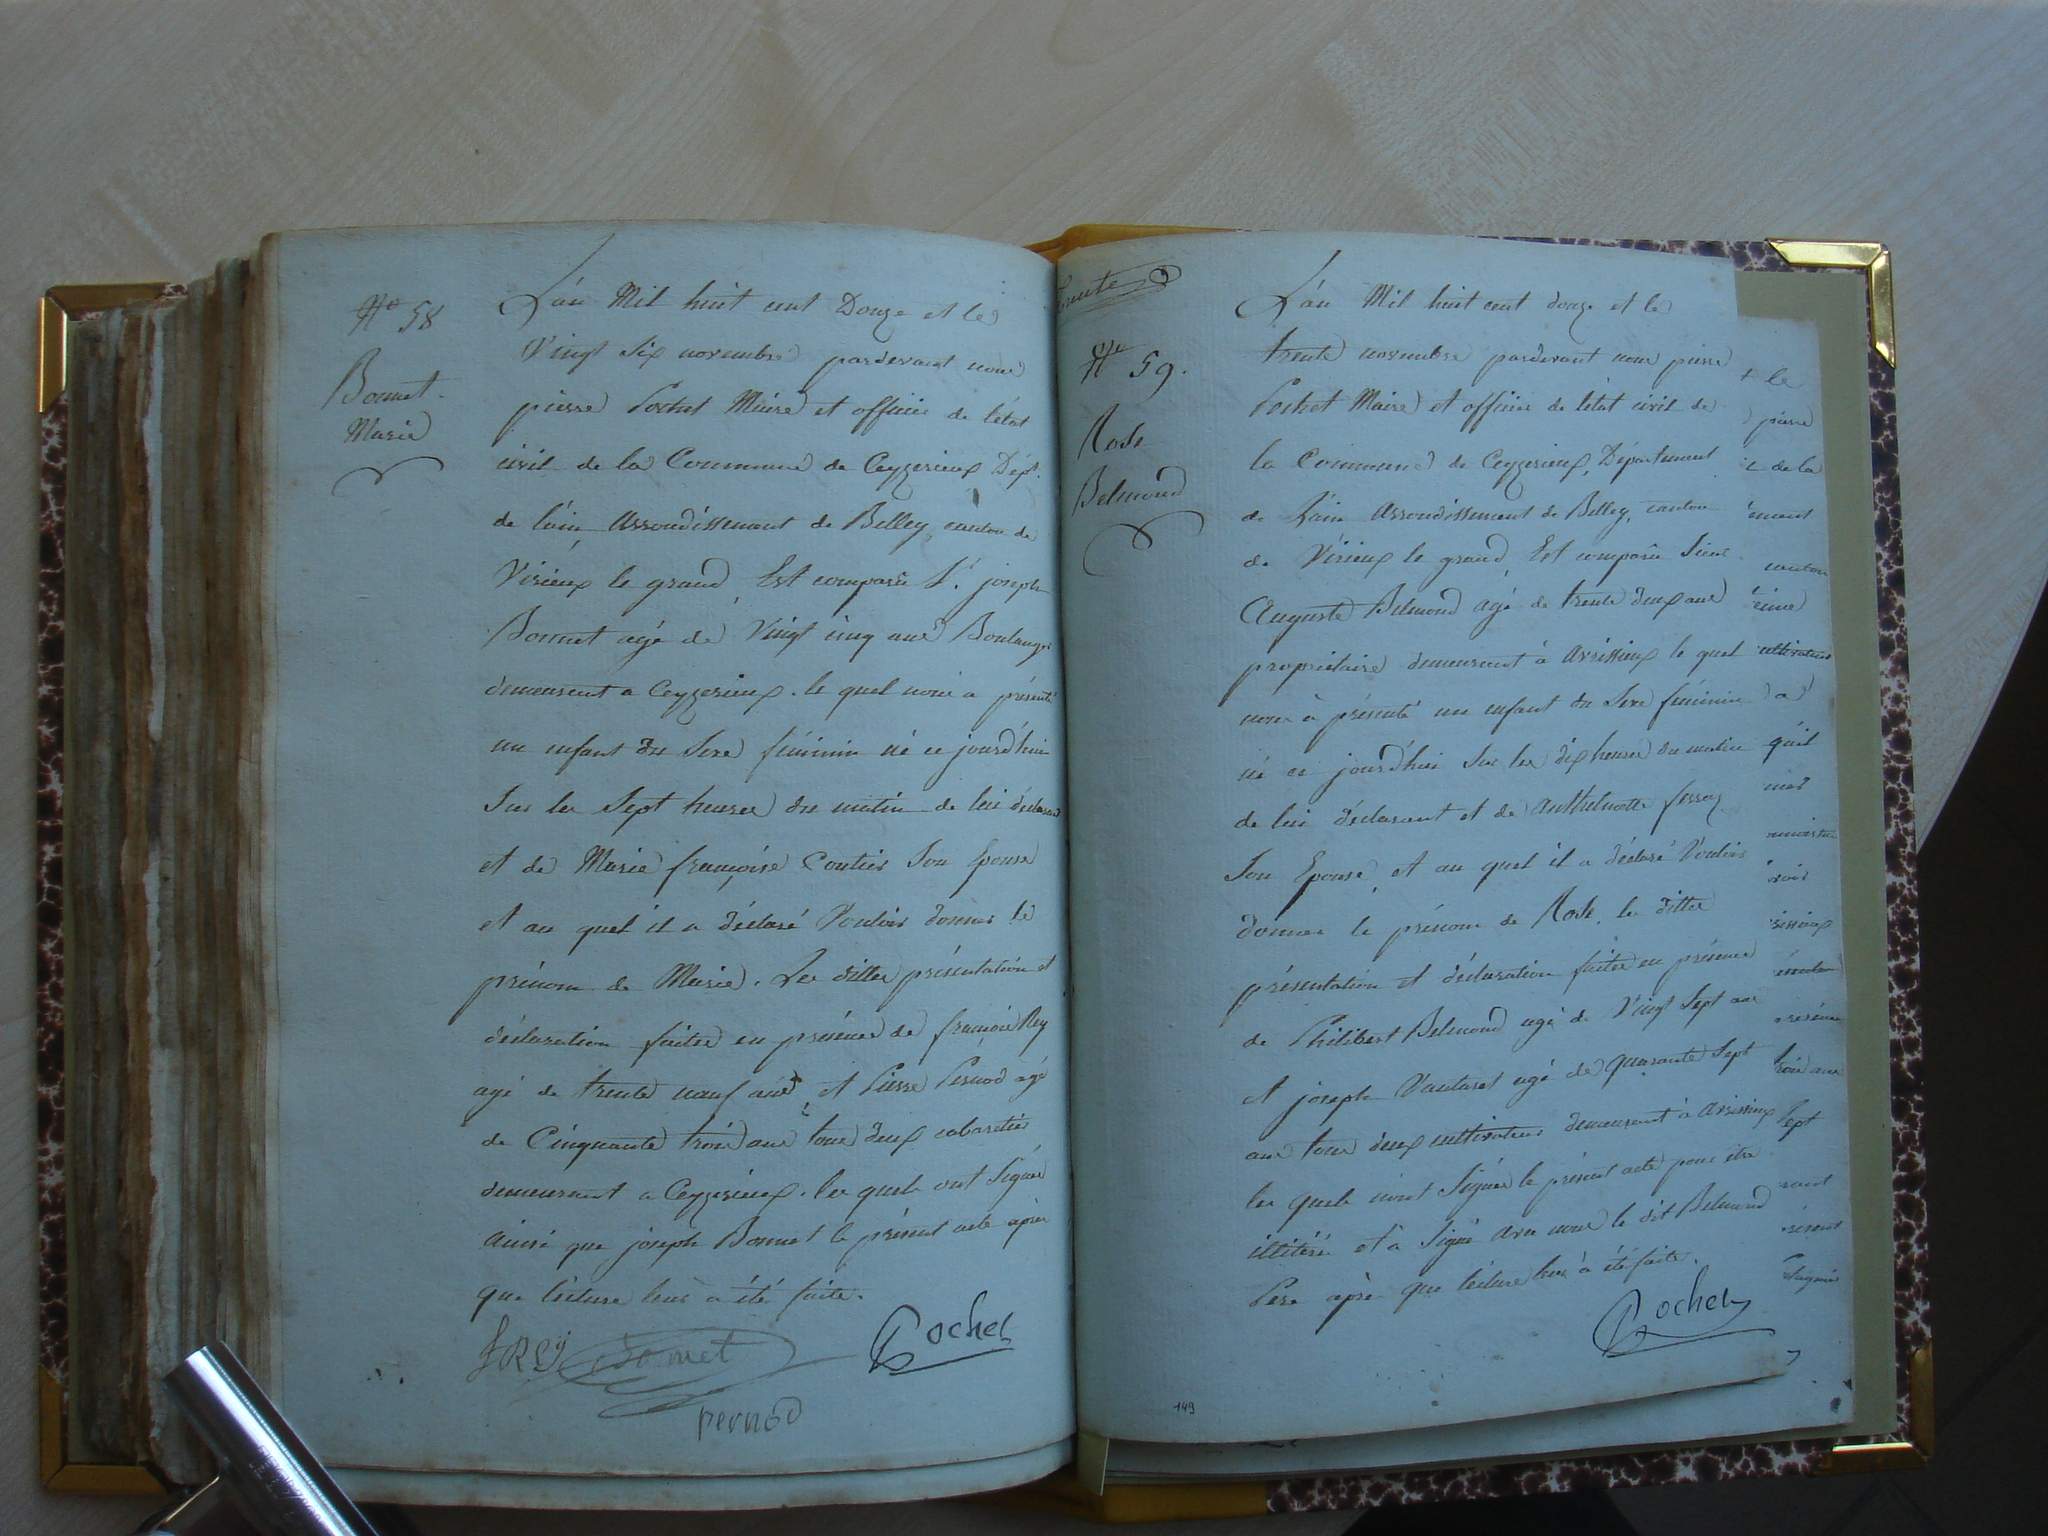 N° 58
Bonnet
Marie
L'an Mil huit cent Douze et le
Vingt Six novembre pardevant nous
pierre Pochet Maire et officier de l'état
civil de la Commune de Ceyzerieux Dépt.
de l'ain, Arrondissement de Belley, canton de
Virieux le grand, Est comparû Sr. joseph
Bonnet agé de Vingt cinq ans Boulanger
demeurant a Ceyzerieux. le quel nous a présenté
un enfant du Sexe féminin né ce jourd'hui
Sur les Sept heures du matin de lui déclarant
et de Marie françoise Coutier Son Epouse
et au quel il a déclaré Vouloir donner le
prénom de Marie. Les dittes présentation et
déclaration faites en présence de françois Rey
agé de trente neuf ans, et Pierre Pernod agé
de Cinquante trois ans tous deux cabaretier
demeurant a Ceyzerieux. les quels ont Signés
ainsi que joseph Bonnet le présent acte après
que lecture leur à été faite.
f REy Bonnet Pochet
pernod
trente
N° 59.
Rose
Belmond
L'an Mil huit cent douze et le
trente novembre pardevant nous pierre
Pochet Maire et officier de l'état civil de
la Commune de Ceyzerieux, Département
de L'ain Arrondissement de Belley, canton
de Virieux le grand, Est comparû Sieur
Auguste Belmond agé de trente deux ans
propriétaire demeurant à Avrissieux le quel
nous à présenté un enfant du Sexe féminin
né ce jourd'hui Sur les dix heures du matin
de lui déclarant et de Anthelmette
Son Epouse, et au quel il a déclaré Vouloir
donner le prénom de Rose. les dittes
présentation et déclaration faites en présence
de Philibert Belmond agé de Vingt Sept ans
et joseph Vautaret agé de quarante Sept
ans tous deux cultivateurs demeurant à Avrissieux
les quels n'ont Signés le présent acte pour être
illitéré et à Signé avec nous le dit Belmond
Pere après que lecture leur à été faite.
Pochet
149
le
pierre
de la
canton
a
qu'il
trois ans
Sept